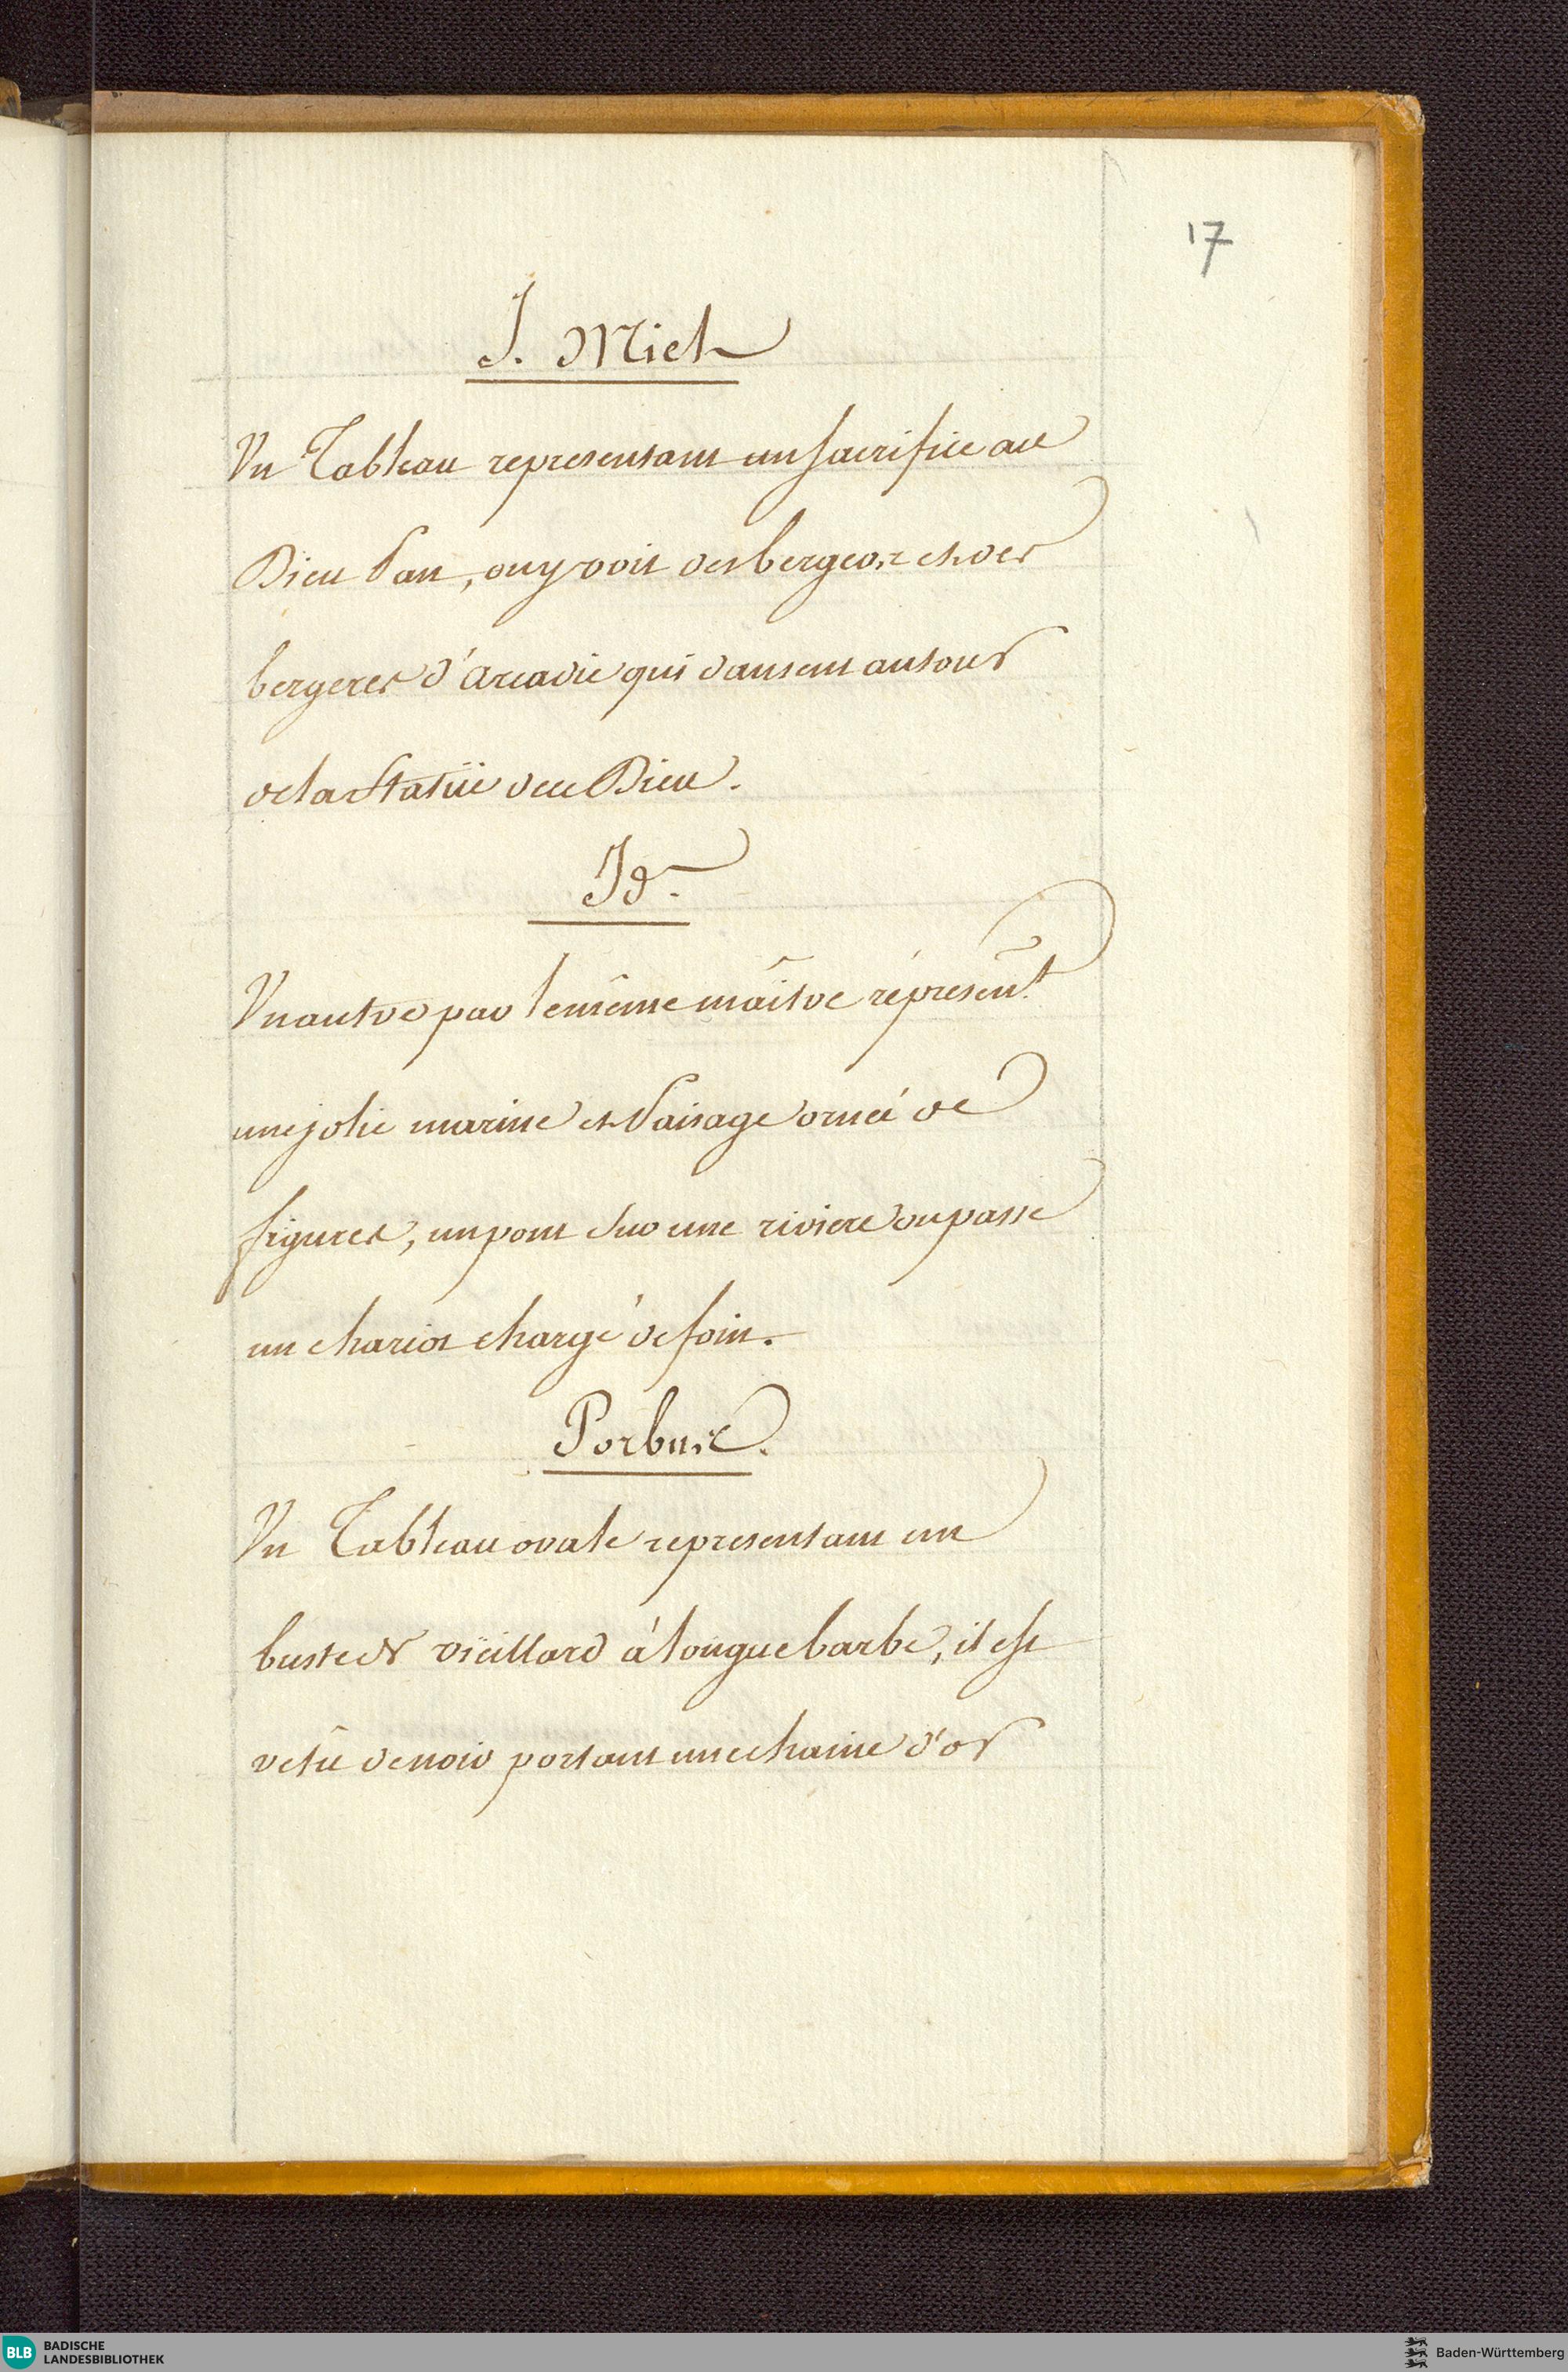 17
J. Miel
Un Tableau representant un sacrifice au
Dieu Pan, on y voit des bergers et des
bergeres d'Arcadie qui dansent autour
de la Statüe de ce Dieu.
Id.
Un autre par le même maître réprésent.t
une jolie marine et Paisage orneé de
figures, un pont sur une riviere ou passe
un chariot chargé de foin.
Porbus.
Un Tableau ovale representant un
buste de viëillard á longue barbe, il est
vetû de noir portant une chaine d'or
BLB BADISCHE
LANDESBIBLIOTHEK
Baden-Württemberg